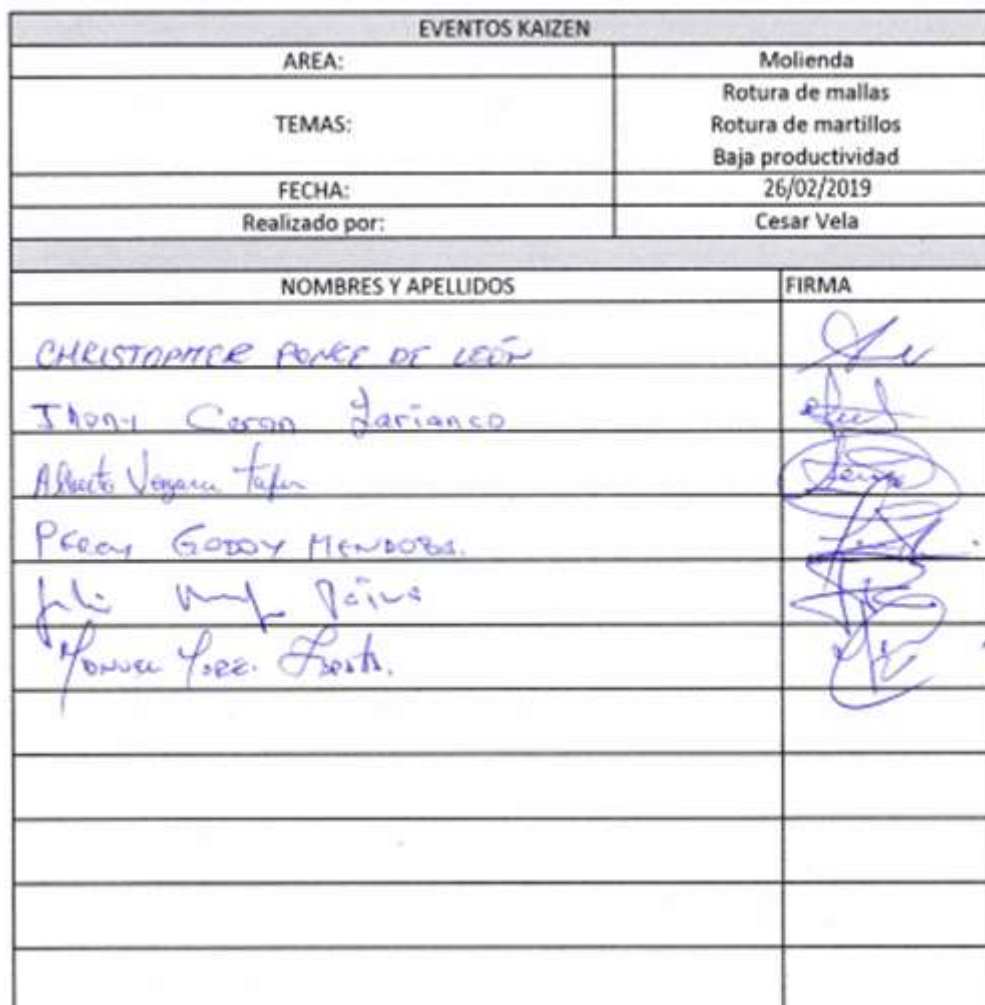 EVENTOS KAIZEN
AREA: Molienda
TEMAS: Rotura de mallas
Rotura de martillos
Baja productividad
FECHA: 26/02/2019
Realizado por: Cesar Vela
NOMBRES Y APELLIDOS FIRMA
CHRISTOPHER PONCE DE LEÓN
Jhony Ceron
Alberto Vergara
PERCY GODOY MENDOZA.
Julio
Manuel